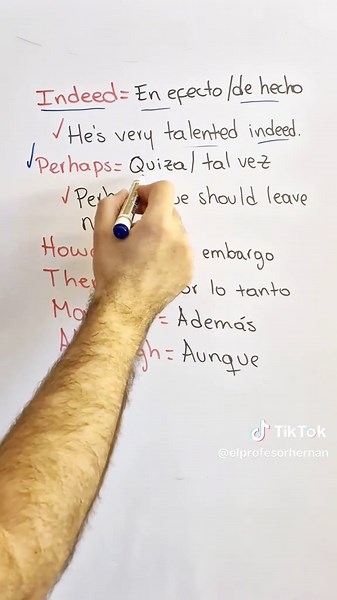 Indeed = En efecto/de hecho
He's very talented indeed.
Perhaps = Quiza/tal vez
should leave
embargo
lo tanto
= Además
= Aunque
TikTok
@elprofesorhernan